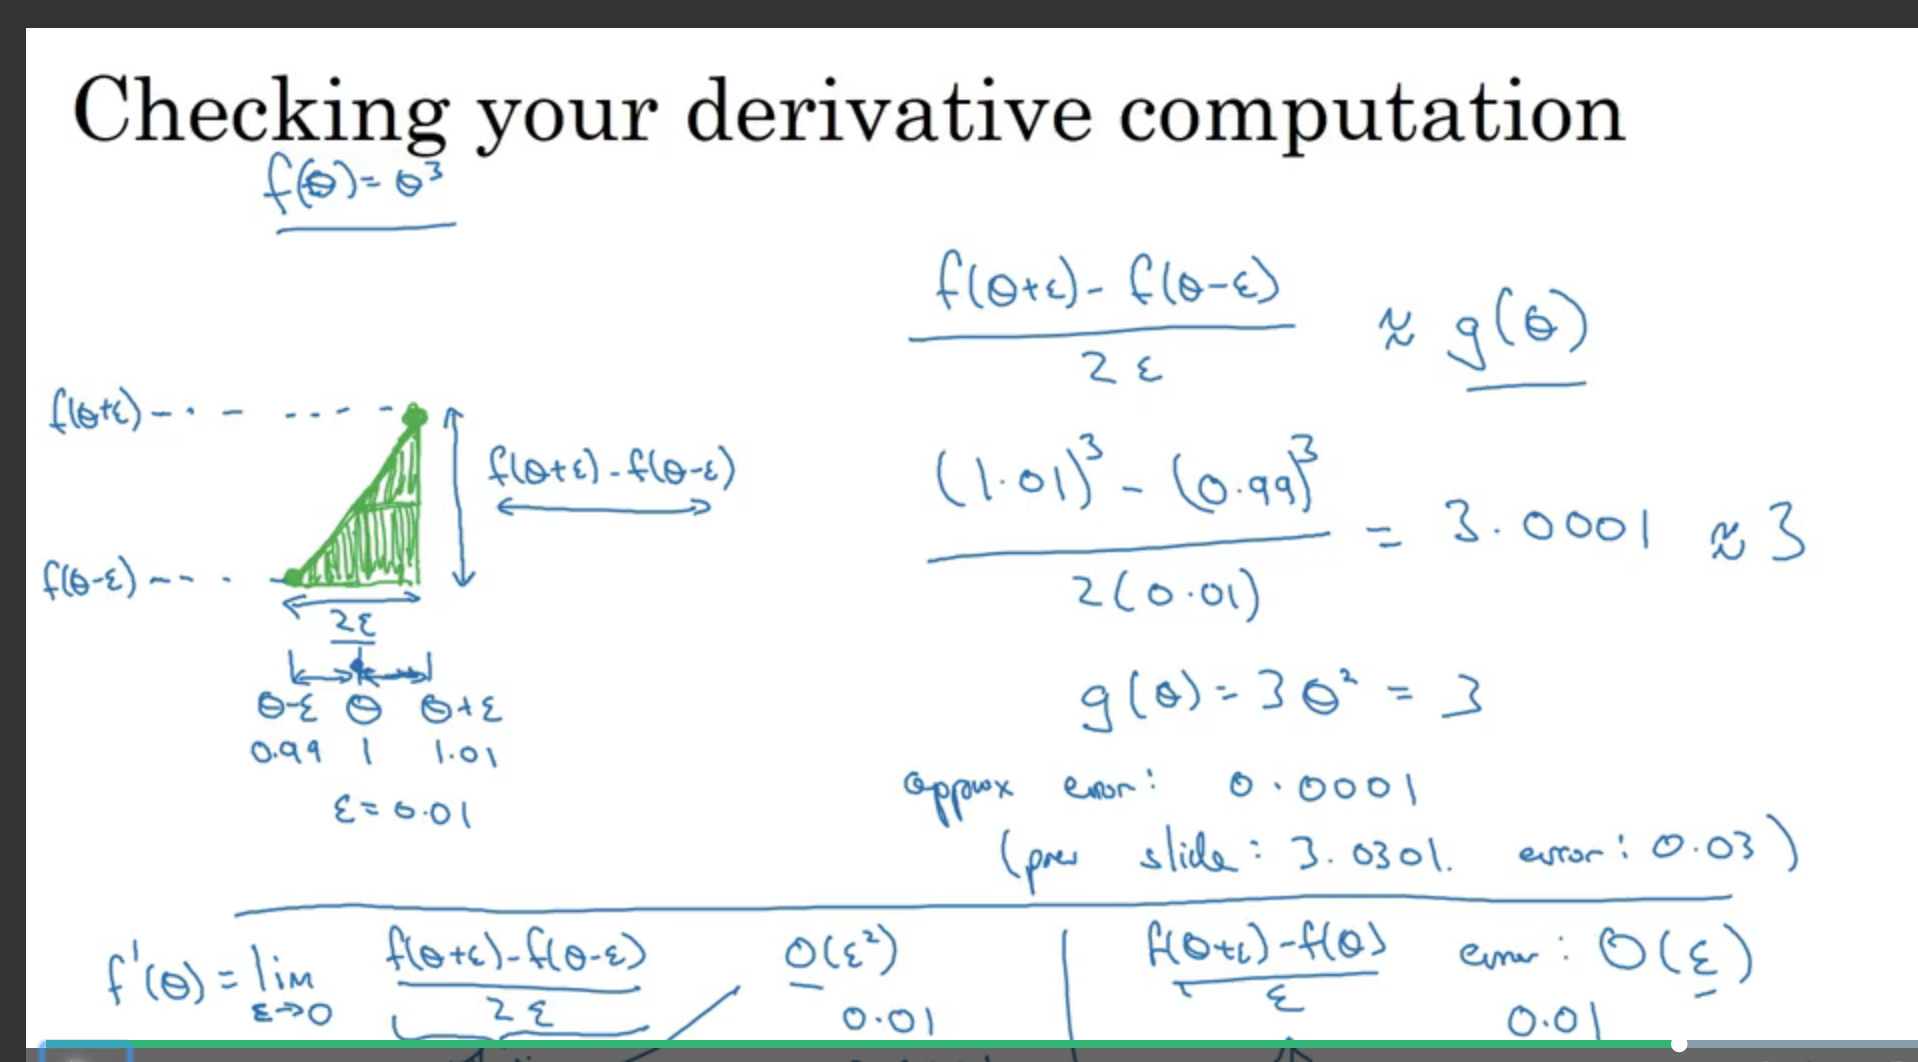 Checking your derivative computation
f(θ) = θ³
f(θ+ε) - f(θ-ε) / 2ε ≈ g(θ)
f(θ+ε)
f(θ+ε) - f(θ-ε)
(1.01)³ - (0.99)³ / 2(0.01) = 3.0001 ≈ 3
f(θ-ε)
2ε
θ-ε θ θ+ε
0.99 1 1.01
ε = 0.01
g(θ) = 3θ² = 3
approx error: 0.0001
(prev slide: 3.0301. error: 0.03)
f'(θ) = lim ε→0 f(θ+ε) - f(θ-ε) / 2ε O(ε²)
0.01
f(θ+ε) - f(θ) / ε error: O(ε)
0.01